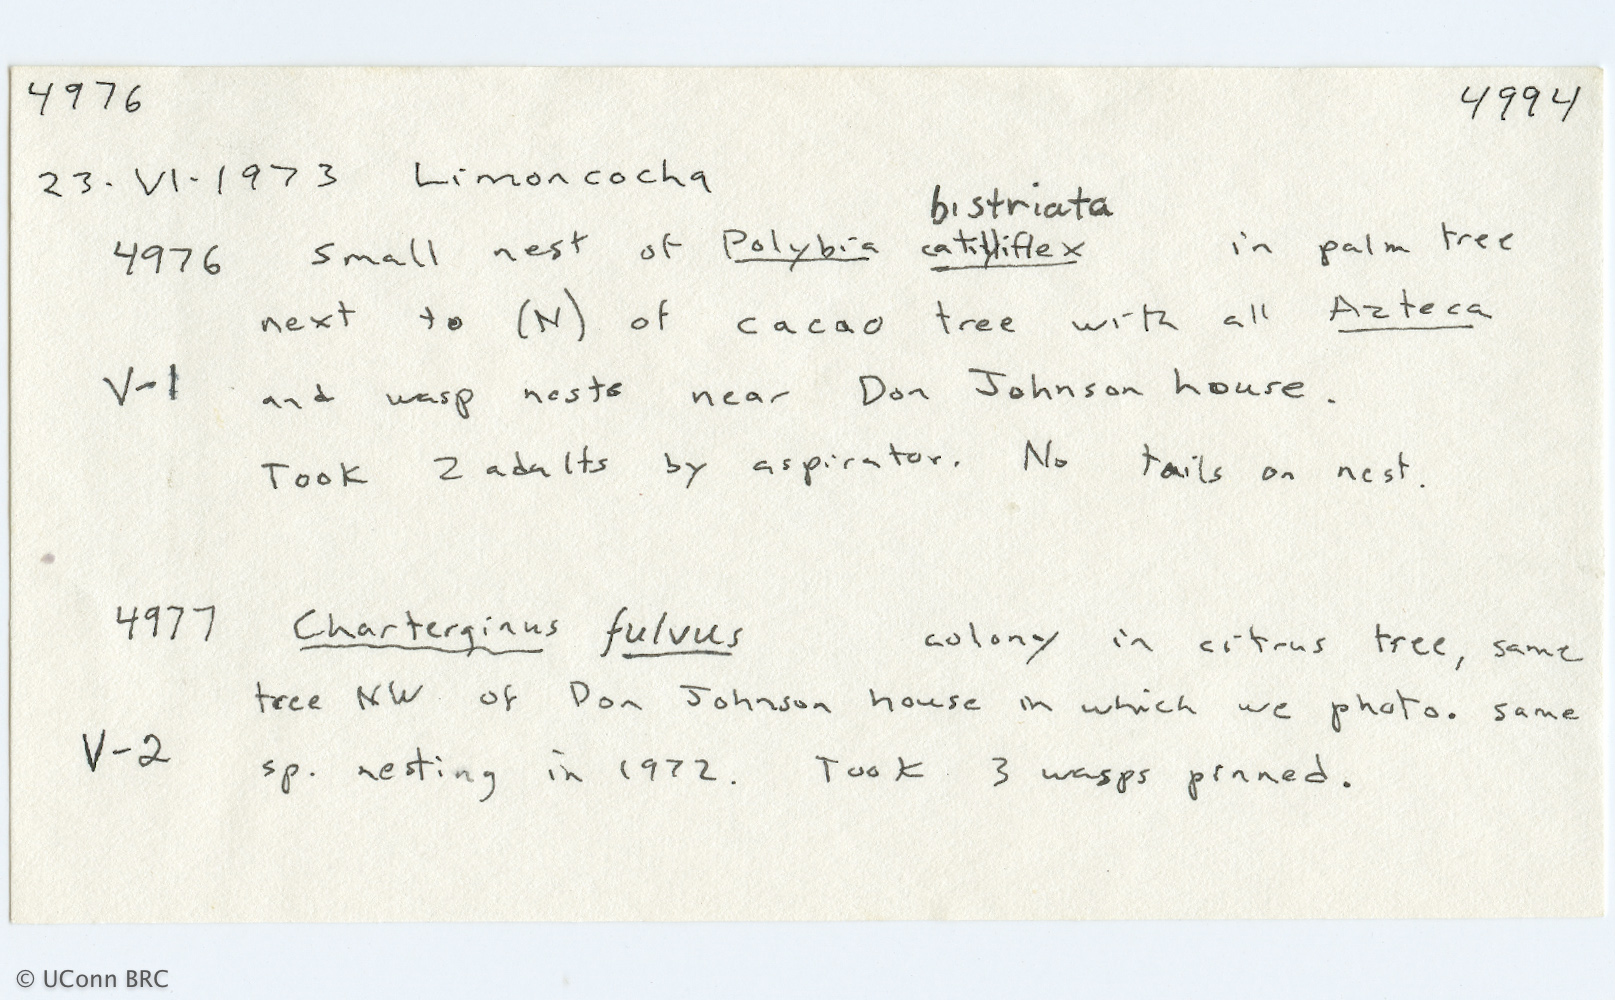 4976 4994
23·VI·1973 Limoncocha
bistriata
4976 small nest of Polybia catilliflex in palm tree
next to (N) of cacao tree with all Azteca
V-1 and wasp nests near Don Johnson house.
Took 2 adults by aspirator. No tails on nest.
4977 Charterginus fulvus colony in citrus tree, same
tree NW of Don Johnson house in which we photo. same
V-2 sp. nesting in 1972. Took 3 wasps pinned.
© UConn BRC